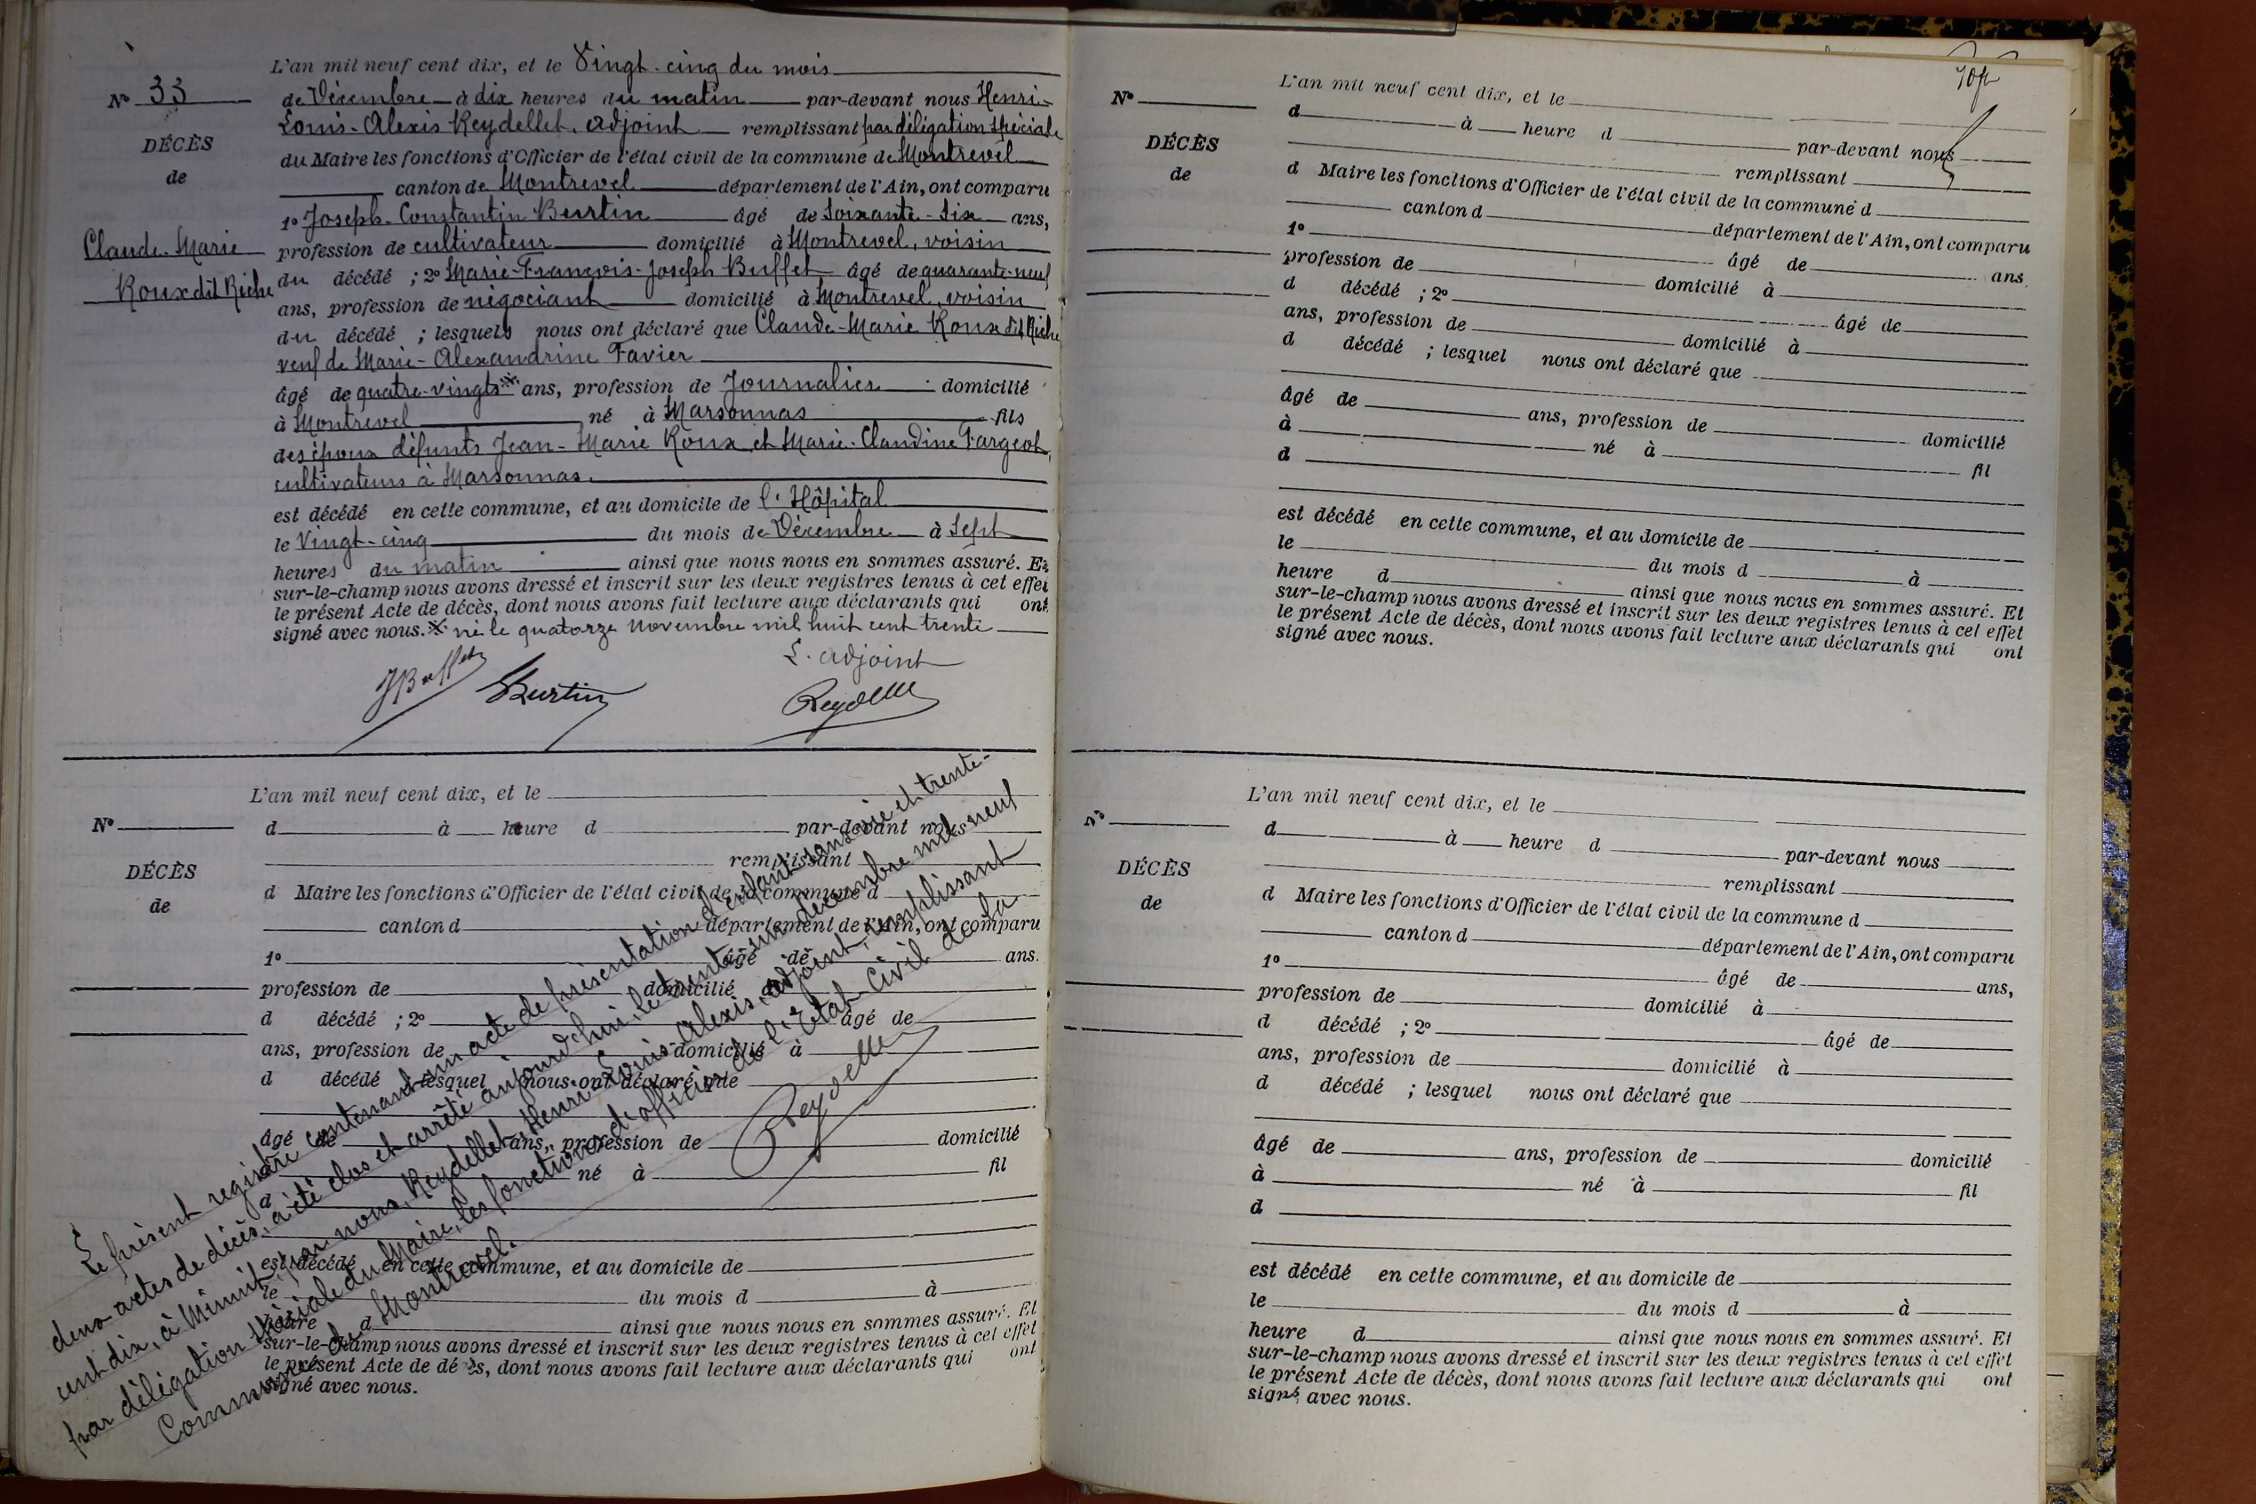 L'an mil neuf cent dix, et le Vingt-cinq du mois
N° 33
de Décembre à dix heures du matin par-devant nous Henri-
Louis-Alexis Reydellet, adjoint remplissant par délégation spéciale
DÉCÈS
du Maire les fonctions d'Officier de l'état civil de la commune de Montrevel
de
canton de Montrevel département de l'Ain, ont comparu
1° Joseph-Constantin Burtin âgé de soixante-six ans,
Claude-Marie
Roux dit Riche
profession de cultivateur domicilié à Montrevel, voisin
du décédé ; 2° Marie-François-Joseph Buffet âgé de quarante-neuf
ans, profession de négociant domicilié à Montrevel, voisin
du décédé ; lesquels nous ont déclaré que Claude-Marie Roux dit Riche
veuf de Marie-Alexandrine Favier
âgé de quatre-vingts ans, profession de Journalier domicilié
à Montrevel né à Marsonnas fils
des époux défunts Jean-Marie Roux et Marie-Claudine Fargeot,
cultivateurs à Marsonnas.
est décédé en cette commune, et au domicile de l'Hôpital
le Vingt-cinq du mois de Décembre à Sept
heures du matin ainsi que nous nous en sommes assuré. Et
sur-le-champ nous avons dressé et inscrit sur les deux registres tenus à cet effet
le présent Acte de décès, dont nous avons fait lecture aux déclarants qui ont
signé avec nous. né le quatorze novembre mil huit cent trente
L'adjoint
JBuffet Burtin Reydellet
L'an mil neuf cent dix, et le
N°
d à heure d par-devant nous
remplissant
DÉCÈS
d Maire les fonctions d'Officier de l'état civil de la commune d
de
canton d département de l'Ain, ont comparu
1° âgé de ans.
profession de domicilié à
d décédé ; 2° âgé de
ans, profession de domicilié à
d décédé ; lesquel nous ont déclaré que
âgé de ans, profession de domicilié
à né à fil
d
est décédé en cette commune, et au domicile de
le du mois d à
heure d ainsi que nous nous en sommes assuré. Et
sur-le-champ nous avons dressé et inscrit sur les deux registres tenus à cet effet
le présent Acte de décès, dont nous avons fait lecture aux déclarants qui ont
signé avec nous.
Le présent registre contenant un acte de présentation d'enfant sans vie et trente-
deux actes de décès, a été clos et arrêté aujourd'hui, le trente-un décembre mil neuf
cent dix, à Minuit, par nous, Reydellet, Henri-Louis-Alexis, adjoint, remplissant
par délégation spéciale du Maire, les fonctions d'officier de l'Etat-Civil de la
Commune de Montrevel.
Reydellet
L'an mil neuf cent dix, et le
N°
d à heure d par-devant nous
remplissant
DÉCÈS
d Maire les fonctions d'Officier de l'état civil de la commune d
de
canton d département de l'Ain, ont comparu
1° âgé de ans.
profession de domicilié à
d décédé ; 2° âgé de
ans, profession de domicilié à
d décédé ; lesquel nous ont déclaré que
âgé de ans, profession de domicilié
à né à fil
d
est décédé en cette commune, et au domicile de
le du mois d à
heure d ainsi que nous nous en sommes assuré. Et
sur-le-champ nous avons dressé et inscrit sur les deux registres tenus à cet effet
le présent Acte de décès, dont nous avons fait lecture aux déclarants qui ont
signé avec nous.
L'an mil neuf cent dix, et le
N°
d à heure d par-devant nous
remplissant
DÉCÈS
d Maire les fonctions d'Officier de l'état civil de la commune d
de
canton d département de l'Ain, ont comparu
1° âgé de ans,
profession de domicilié à
d décédé ; 2° âgé de
ans, profession de domicilié à
d décédé ; lesquel nous ont déclaré que
âgé de ans, profession de domicilié
à né à fil
d
est décédé en cette commune, et au domicile de
le du mois d à
heure d ainsi que nous nous en sommes assuré. Et
sur-le-champ nous avons dressé et inscrit sur les deux registres tenus à cet effet
le présent Acte de décès, dont nous avons fait lecture aux déclarants qui ont
signé avec nous.